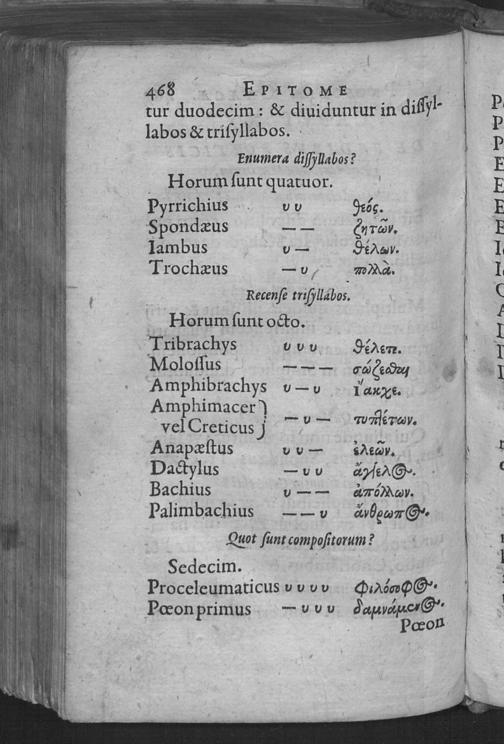 468 EPITOME
tur duodecim : & diuiduntur in dissyl-
labos & trisyllabos.
Enumera dissyllabos?
Horum sunt quatuor.
Pyrrichius υ υ θεός.
Spondæus — — ζητῶν.
Iambus υ — θέλων.
Trochæus — υ πολλὰ.
Recense trisyllabos.
Horum sunt octo.
Tribrachys υ υ υ θέλετε.
Molossus — — — σώζεσθαι
Amphibrachys υ — υ ἴακχε.
Amphimacer
vel Creticus — υ — τυπτέτων.
Anapæstus υ υ — ἐλεῶν.
Dactylus — υ υ ἄγγελος.
Bachius υ — — ἀπόλλων.
Palimbachius — — υ ἄνθρωπος.
Quot sunt compositorum?
Sedecim.
Proceleumaticus υ υ υ υ φιλόσοφος.
Pœon primus — υ υ υ δαμνάμενος.
Pœon
P
P
P
E
E
E
E